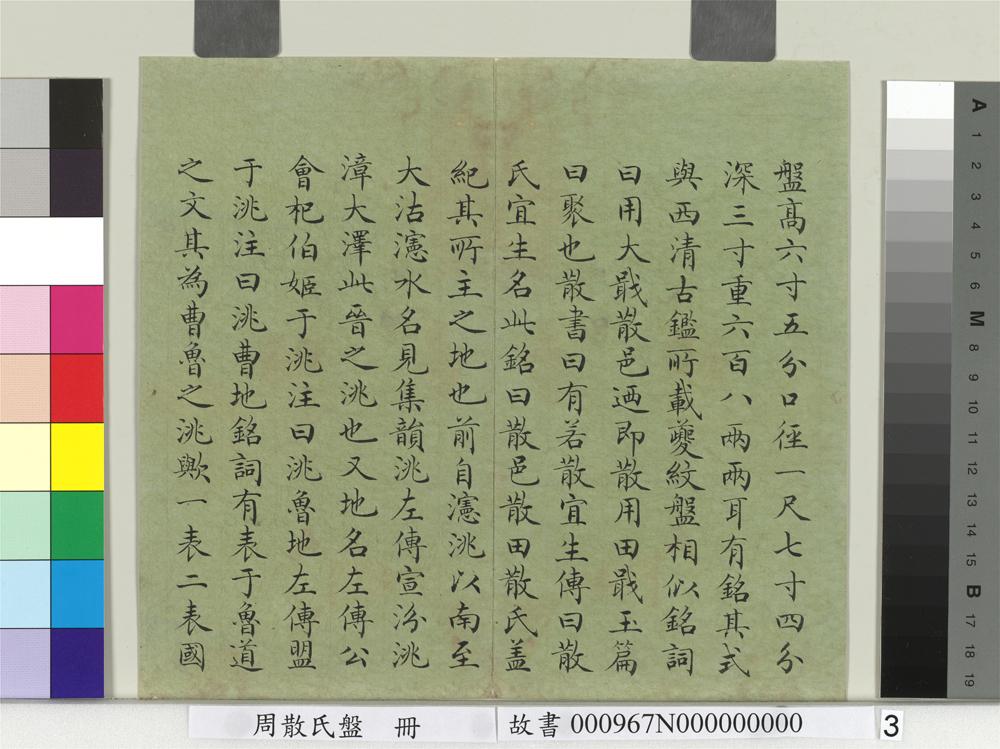 盤高六寸五分口徑一尺七寸四分
深三寸重六百八兩兩耳有銘其式
與西清古鑑所載夔紋盤相似銘詞
曰用大戢散邑迺即散用田戢玉篇
曰聚也散書曰有若散宜生傳曰散
氏宜生名此銘曰散邑散田散氏蓋
紀其所主之地也前自瀗洮以南至
大沽瀗水名見集韻洮左傳宣汾洮
漳大澤此晉之洮也又地名左傳公
會杞伯姬于洮注曰洮魯地左傳盟
于洮注曰洮曹地銘詞有表于魯道
之文其為曹魯之洮歟一表二表國
周散氏盤 冊
故書 000967N000000000
3
A 1 2 3 4 5 6 M 8 9 10 11 12 13 14 15 B 17 18 19